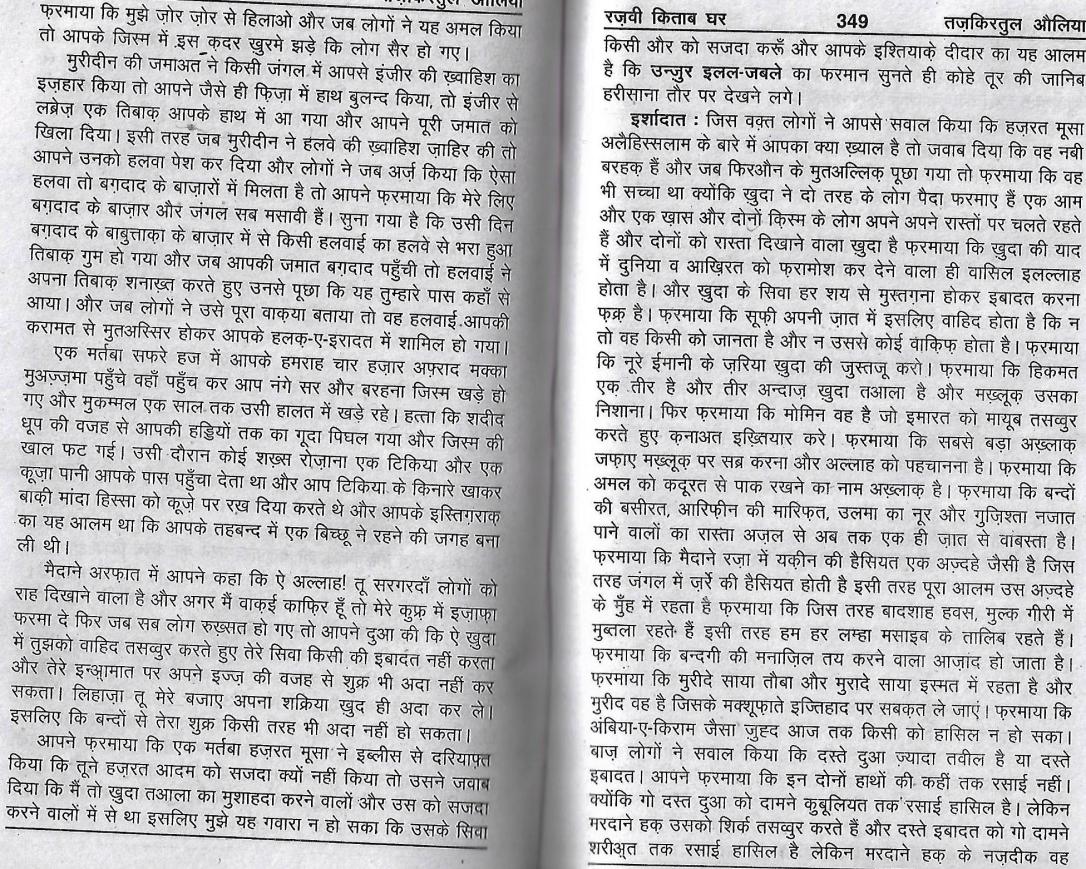 फ़रमाया कि मुझे ज़ोर ज़ोर से हिलाओ और जब लोगों ने यह अमल किया
तो आपके जिस्म में इस क़दर खुरमे झड़े कि लोग सैर हो गए।
मुरीदीन की जमाअत ने किसी जंगल में आपसे इंजीर की ख़्वाहिश का
इज़हार किया तो आपने जैसे ही फ़िज़ा में हाथ बुलन्द किया, तो इंजीर से
लब्रेज़ एक तिबाक़ आपके हाथ में आ गया और आपने पूरी जमात को
खिला दिया। इसी तरह जब मुरीदीन ने हलवे की ख़्वाहिश ज़ाहिर की तो
आपने उनको हलवा पेश कर दिया और लोगों ने जब अर्ज़ किया कि ऐसा
हलवा तो बग़दाद के बाज़ारों में मिलता है तो आपने फ़रमाया कि मेरे लिए
बग़दाद के बाज़ार और जंगल सब मसावी हैं। सुना गया है कि उसी दिन
बग़दाद के बाबुत्ताका के बाज़ार में से किसी हलवाई का हलवे से भरा हुआ
तिबाक़ गुम हो गया और जब आपकी जमात बग़दाद पहुँची तो हलवाई ने
अपना तिबाक़ शनाख़्त करते हुए उनसे पूछा कि यह तुम्हारे पास कहाँ से
आया। और जब लोगों ने उसे पूरा वाक़या बताया तो वह हलवाई आपकी
करामत से मुतअस्सिर होकर आपके हलक़-ए-इरादत में शामिल हो गया।
एक मर्तबा सफ़रे हज में आपके हमराह चार हज़ार अफ़्राद मक्का
मुअज़्ज़मा पहुँचे वहाँ पहुँच कर आप नंगे सर और बरहना जिस्म खड़े हो
गए और मुकम्मल एक साल तक उसी हालत में खड़े रहे। हत्ता कि शदीद
धूप की वजह से आपकी हड्डियों तक का गूदा पिघल गया और जिस्म की
खाल फट गई। उसी दौरान कोई शख़्स रोज़ाना एक टिकिया और एक
कूज़ा पानी आपके पास पहुँचा देता था और आप टिकिया के किनारे खाकर
बाक़ी मांदा हिस्सा को कूज़े पर रख दिया करते थे और आपके इस्तिग़राक़
का यह आलम था कि आपके तहबन्द में एक बिच्छू ने रहने की जगह बना
ली थी।
मैदाने अरफ़ात में आपने कहा कि ऐ अल्लाह! तू सरगरदाँ लोगों को
राह दिखाने वाला है और अगर मैं वाक़ई काफ़िर हूँ तो मेरे कुफ़्र में इज़ाफ़ा
फरमा दे फिर जब सब लोग रुख़्सत हो गए तो आपने दुआ की कि ऐ खुदा
में तुझको वाहिद तसव्वुर करते हुए तेरे सिवा किसी की इबादत नहीं करता
और तेरे इन्आमात पर अपने इज्ज़ की वजह से शुक्र भी अदा नहीं कर
सकता। लिहाज़ा तू मेरे बजाए अपना शक्रिया खुद ही अदा कर ले।
इसलिए कि बन्दों से तेरा शुक्र किसी तरह भी अदा नहीं हो सकता।
आपने फ़रमाया कि एक मर्तबा हज़रत मूसा ने इब्लीस से दरियाफ़्त
किया कि तूने हज़रत आदम को सजदा क्यों नहीं किया तो उसने जवाब
दिया कि मैं तो ख़ुदा तआला का मुशाहदा करने वालों और उस को सजदा
करने वालों में से था इसलिए मुझे यह गवारा न हो सका कि उसके सिवा
रज़वी किताब घर 349 तज़किरतुल औलिया
किसी और को सजदा करूँ और आपके इश्तियाक़े दीदार का यह आलम
है कि उन्ज़ुर इलल-जबले का फरमान सुनते ही कोहे तूर की जानिब
हरीसाना तौर पर देखने लगे।
इर्शादात : जिस वक़्त लोगों ने आपसे सवाल किया कि हज़रत मूसा
अलैहिस्सलाम के बारे में आपका क्या ख़्याल है तो जवाब दिया कि वह नबी
बरहक़ हैं और जब फिरऔन के मुतअल्लिक़ पूछा गया तो फ़रमाया कि वह
भी सच्चा था क्योंकि खुदा ने दो तरह के लोग पैदा फरमाए हैं एक आम
और एक ख़ास और दोनों क़िस्म के लोग अपने अपने रास्तों पर चलते रहते
हैं और दोनों को रास्ता दिखाने वाला ख़ुदा है फ़रमाया कि ख़ुदा की याद
में दुनिया व आख़िरत को फ़रामोश कर देने वाला ही वासिल इलल्लाह
होता है। और खुदा के सिवा हर शय से मुस्तग़ना होकर इबादत करना
फ़क़्र है। फ़रमाया कि सूफ़ी अपनी ज़ात में इसलिए वाहिद होता है कि न
तो वह किसी को जानता है और न उससे कोई वाक़िफ़ होता है। फ़रमाया
कि नूरे ईमानी के ज़रिया ख़ुदा की जुस्तजू करो। फ़रमाया कि हिकमत
एक तीर है और तीर अन्दाज़ ख़ुदा तआला है और मख़्लूक़ उसका
निशाना। फिर फ़रमाया कि मोमिन वह है जो इमारत को मायूब तसव्वुर
करते हुए क़नाअत इख़्तियार करे। फ़रमाया कि सबसे बड़ा अख़्लाक़
जफ़ाए मख़्लूक़ पर सब्र करना और अल्लाह को पहचानना है। फ़रमाया कि
अमल को कदूरत से पाक रखने का नाम अख़्लाक़ है। फ़रमाया कि बन्दों
की बसीरत, आरिफ़ीन की मारिफ़त, उलमा का नूर और गुज़िश्ता नजात
पाने वालों का रास्ता अज़ल से अब तक एक ही ज़ात से वाबस्ता है।
फ़रमाया कि मैदाने रज़ा में यक़ीन की हैसियत एक अज़्दहे जैसी है जिस
तरह जंगल में ज़र्रे की हैसियत होती है इसी तरह पूरा आलम उस अज़्दहे
के मुँह में रहता है फ़रमाया कि जिस तरह बादशाह हवस, मुल्क गीरी में
मुब्तला रहते हैं इसी तरह हम हर लम्हा मसाइब के तालिब रहते हैं।
फ़रमाया कि बन्दगी की मनाज़िल तय करने वाला आज़ाद हो जाता है।
फ़रमाया कि मुरीदे साया तौबा और मुरादे साया इस्मत में रहता है और
मुरीद वह है जिसके मक्शूफ़ाते इज्तिहाद पर सबक़त ले जाएं। फ़रमाया कि
अंबिया-ए-किराम जैसा ज़ुह्द आज तक किसी को हासिल न हो सका।
बाज़ लोगों ने सवाल किया कि दस्ते दुआ ज़्यादा तवील है या दस्ते
इबादत। आपने फ़रमाया कि इन दोनों हाथों की कहीं तक रसाई नहीं।
क्योंकि गो दस्त दुआ को दामने क़ुबूलियत तक रसाई हासिल है। लेकिन
मरदाने हक़ उसको शिर्क तसव्वुर करते हैं और दस्ते इबादत को गो दामने
शरीअ़त तक रसाई हासिल है लेकिन मरदाने हक़ के नज़दीक वह